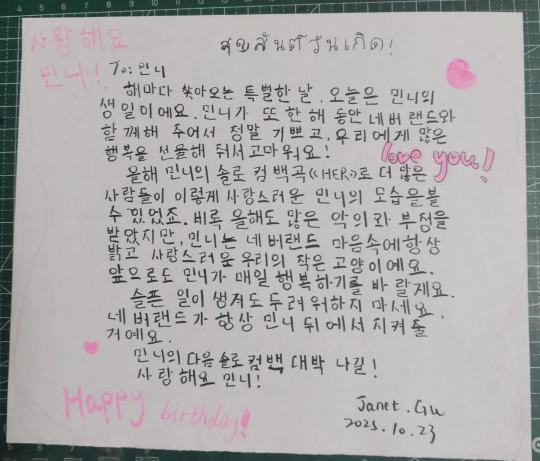 사랑해요
민니!
สุขสันต์วันเกิด!
To: 민니
해마다 찾아오는 특별한 날, 오늘은 민니의
생일이에요. 민니가 또 한 해 동안 네버랜드와
함께해 주어서 정말 기쁘고, 우리에게 많은
행복을 선물해 줘서 고마워요!
love you!
올해 민니의 솔로 컴백곡《HER》로 더 많은
사람들이 이렇게 사랑스러운 민니의 모습을 볼
수 있었죠. 비록 올해도 많은 악의와 부정을
받았지만, 민니는 네버랜드 마음속에 항상
밝고 사랑스러운 우리의 작은 고양이예요.
앞으로도 민니가 매일 행복하기를 바랄게요.
슬픈 일이 생겨도 두려워하지 마세요.
네버랜드가 항상 민니 뒤에서 지켜줄
거예요.
민니의 다음 솔로 컴백 대박 나길!
사랑해요 민니!
Happy birthday!
Janet. Gu
2025.10.23